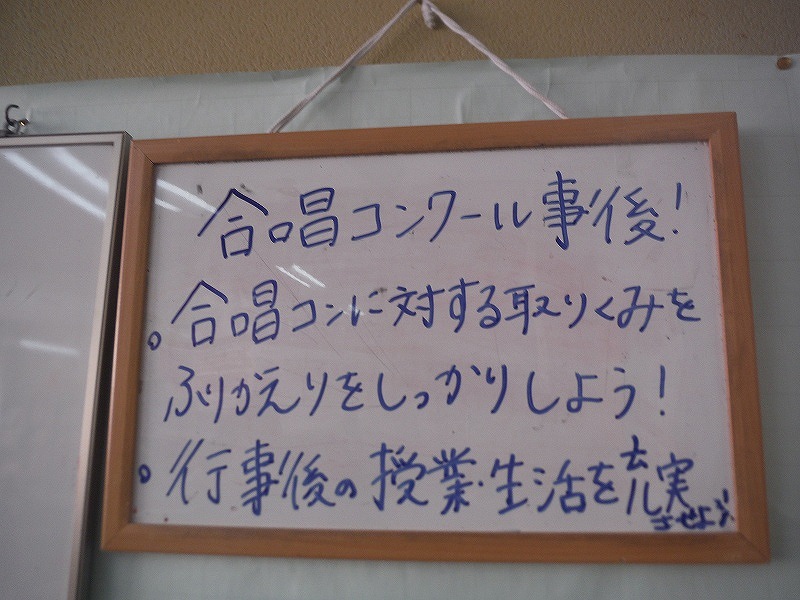 合唱コンクール事後!
。合唱コンに対する取りくみを
ふりがえりをしっかりしよう!
。行事後の授業・生活を充実
させよう!